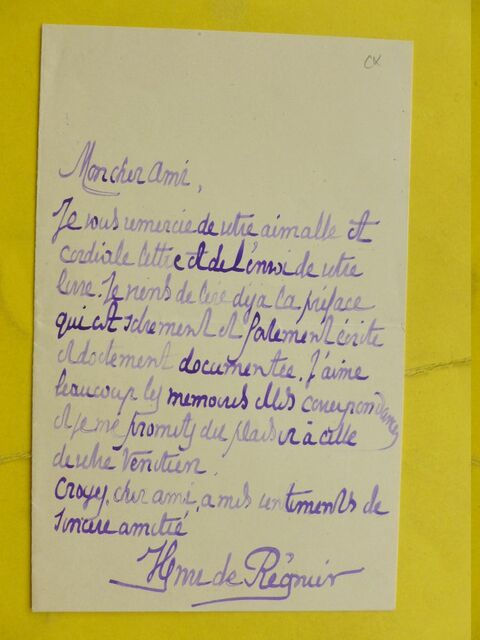 CX
Mon cher ami,
Je vous remercie de votre aimable et
cordiale lettre et de l'envoi de votre
livre. Je viens de lire déja la préface
qui est et fortement écrite
et doctement documentée. J'aime
beaucoup les memoires et les correspondances
et je me promets du plaisir à celle
de votre Vénitien.
Croyez, cher ami, a mes sentiments de
sincère amitié
Henri de Régnier